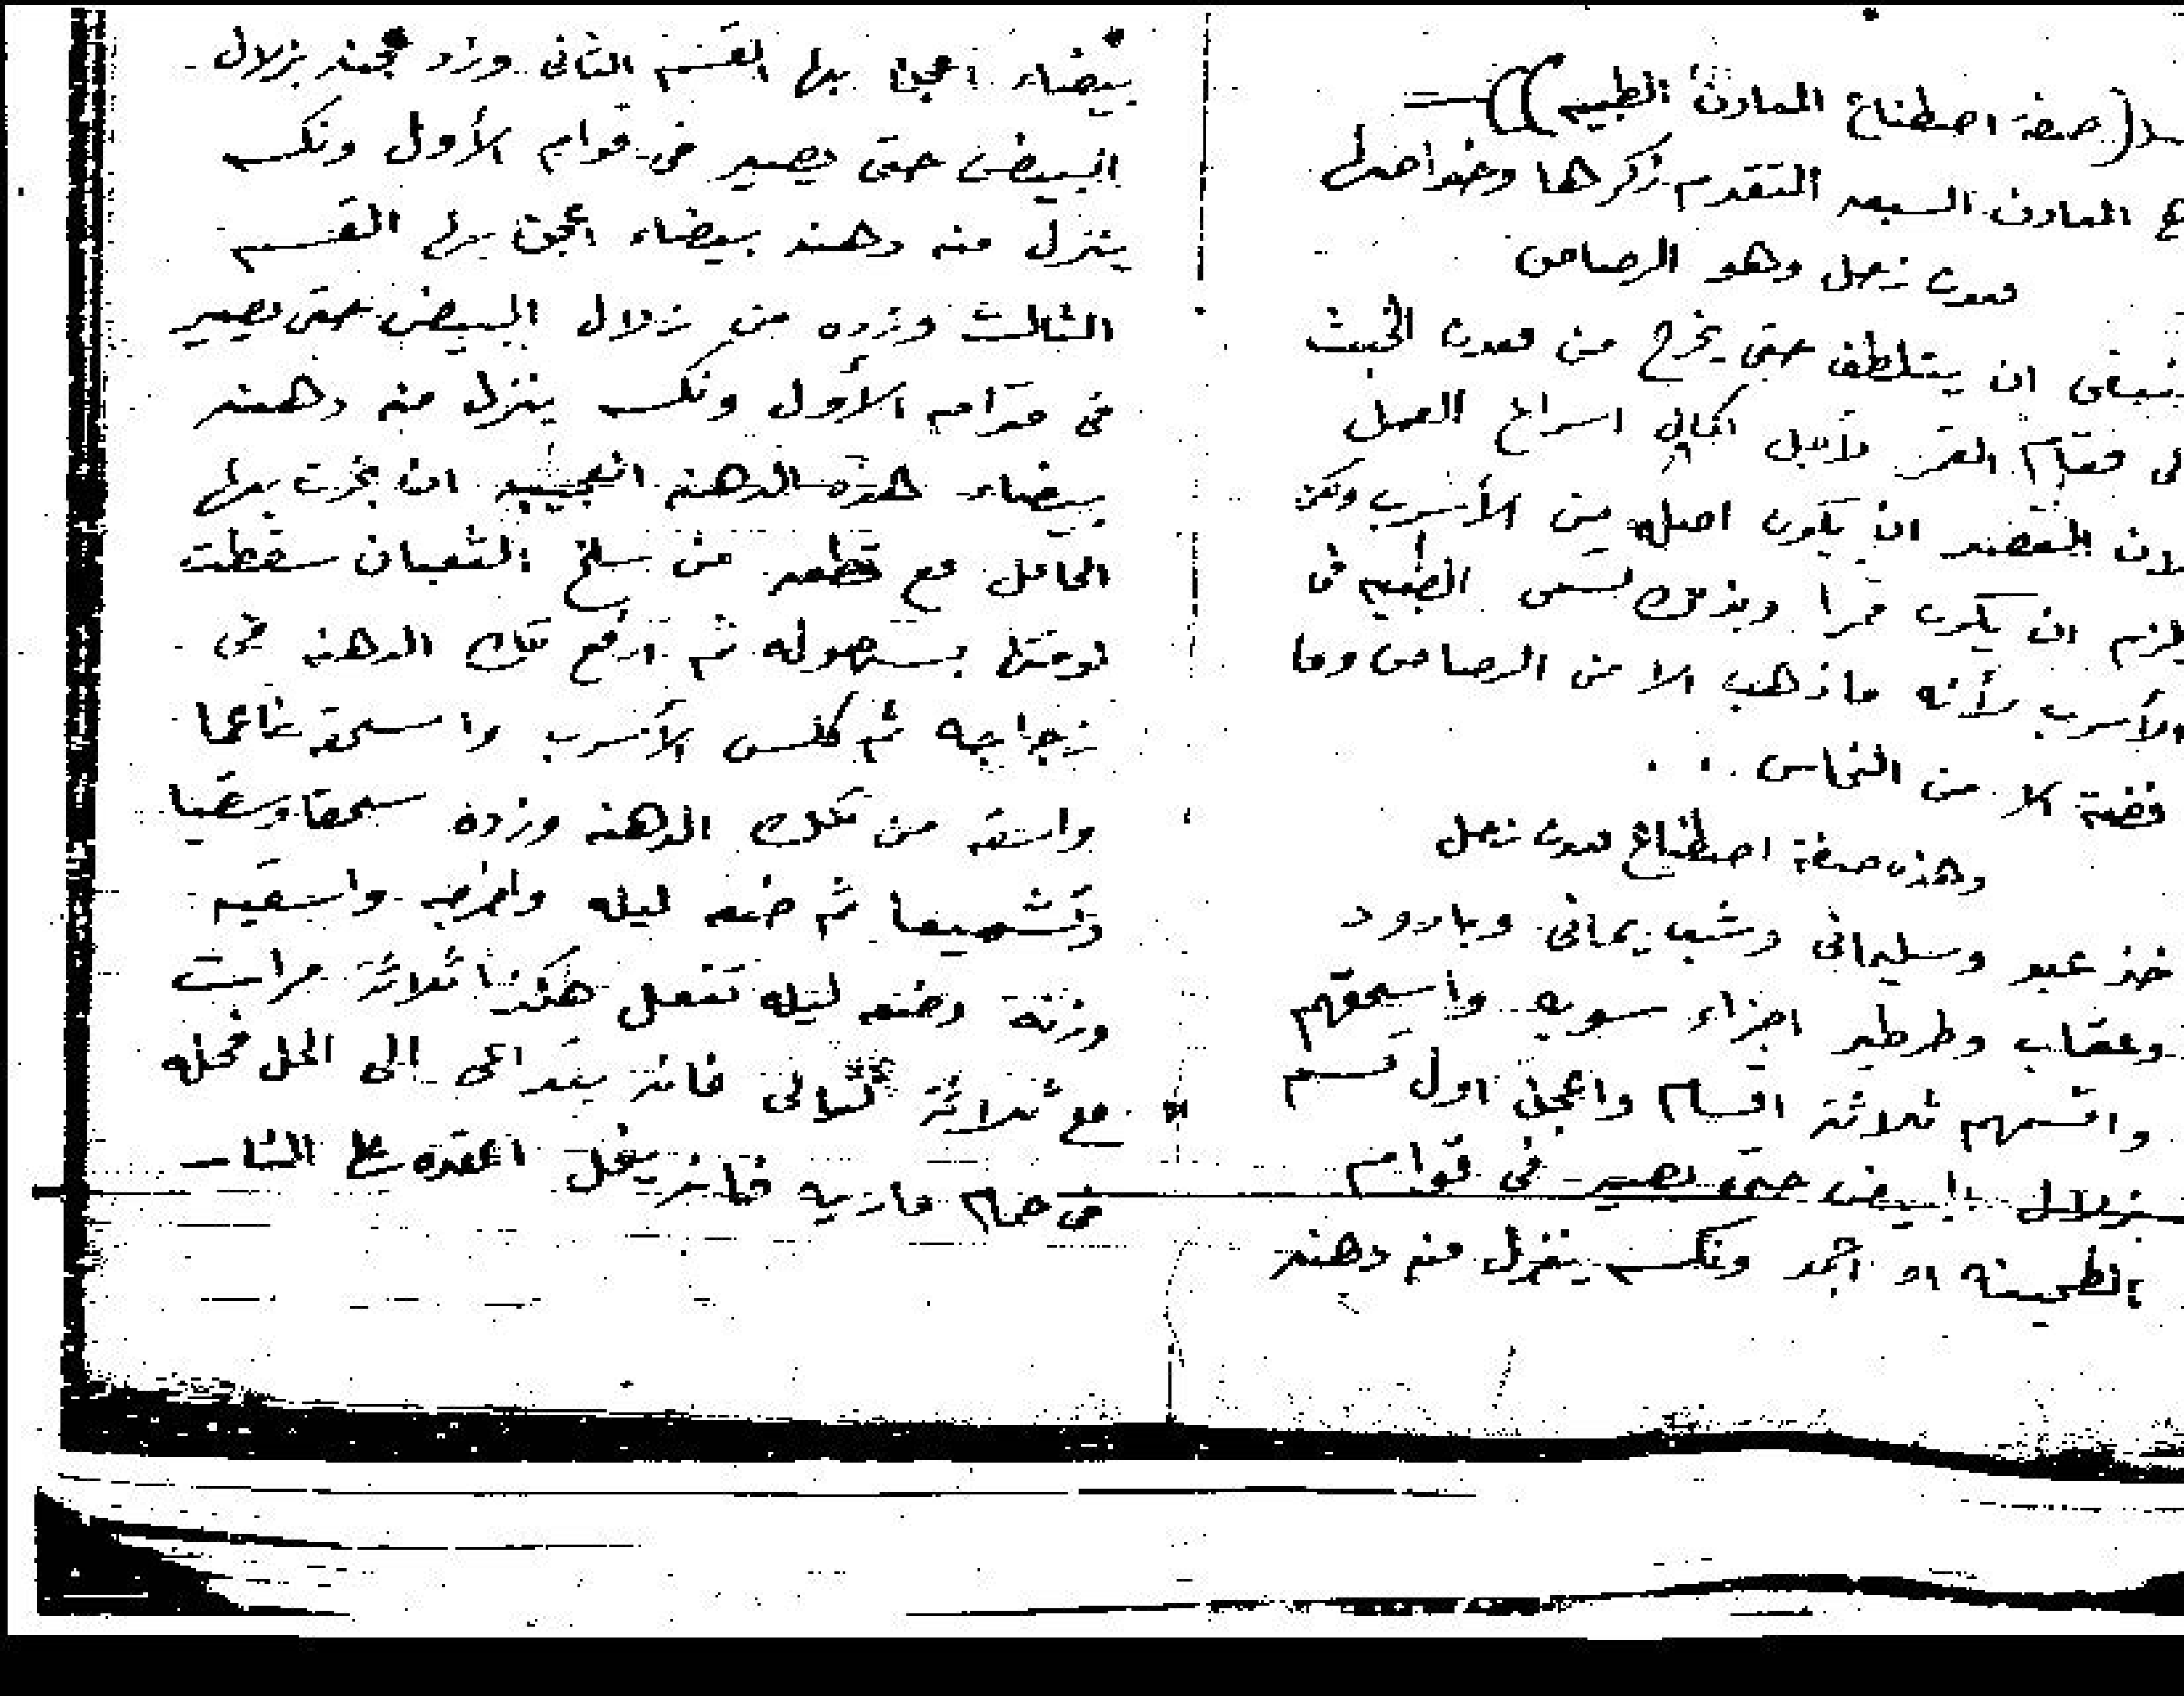 ((صفة اصطناع المعادن الطيبه))
المعادن السبعه المتقدم ذكرها وخواصها
معدن زحل وهو الرصاص
ينبغى ان يتلطف حتى يخرج من معدن الخبث
الى مقام القمر لأجل اسراع العمل
لان القصد ان يكون اصله من الأسرب ولكن
يلزم ان يكون قمرا وبذلك تسمى فى
الأسرب لأنه ما ذهب الا من الرصاص وما
فضة الا من النحاس . .
وهذه صفة اصطناع معدن زحل
خذ عبد وسليمانى وشب يمانى وبارود
وعقاب وطرطير اجزاء سويه واسحقهم
واقسمهم ثلاثة اقسام واعجن اول قسم
بزلال البيض حتى يصير فى قوام
الطحينه او اجمد ونكسه ينزل منه دهنه
بيضاء اعجن بها القسم الثانى وزد عجنه بزلال
البيض حتى يصير فى قوام الأول ونكسه
ينزل منه دهنه بيضاء اعجن بها القسم
الثالث وزده من زلال البيض حتى يصير
فى قوام الأول ونكسه ينزل منه دهنه
بيضاء هذه الدهنه العجيبه ان بخرت بها
الحامل مع قطعه من سلخ الثعبان سقطت
لوقتها بسهوله ثم ارفع تلك الدهنه فى
زجاجه ثم كلس الأسرب واسحقه ناعما
واسقه من تلك الدهنه وزده سحقا وسقيا
وتشميعا ثم ضعه ليله واخرجه واسقيه
وزنة وضعه ليله تفعل هكذا ثلاثة مرات
مع ثلاثة ليالى فانه يتداعى الى الحل فحله
فى حمام ماريه فانه ينحل اعقده على النار